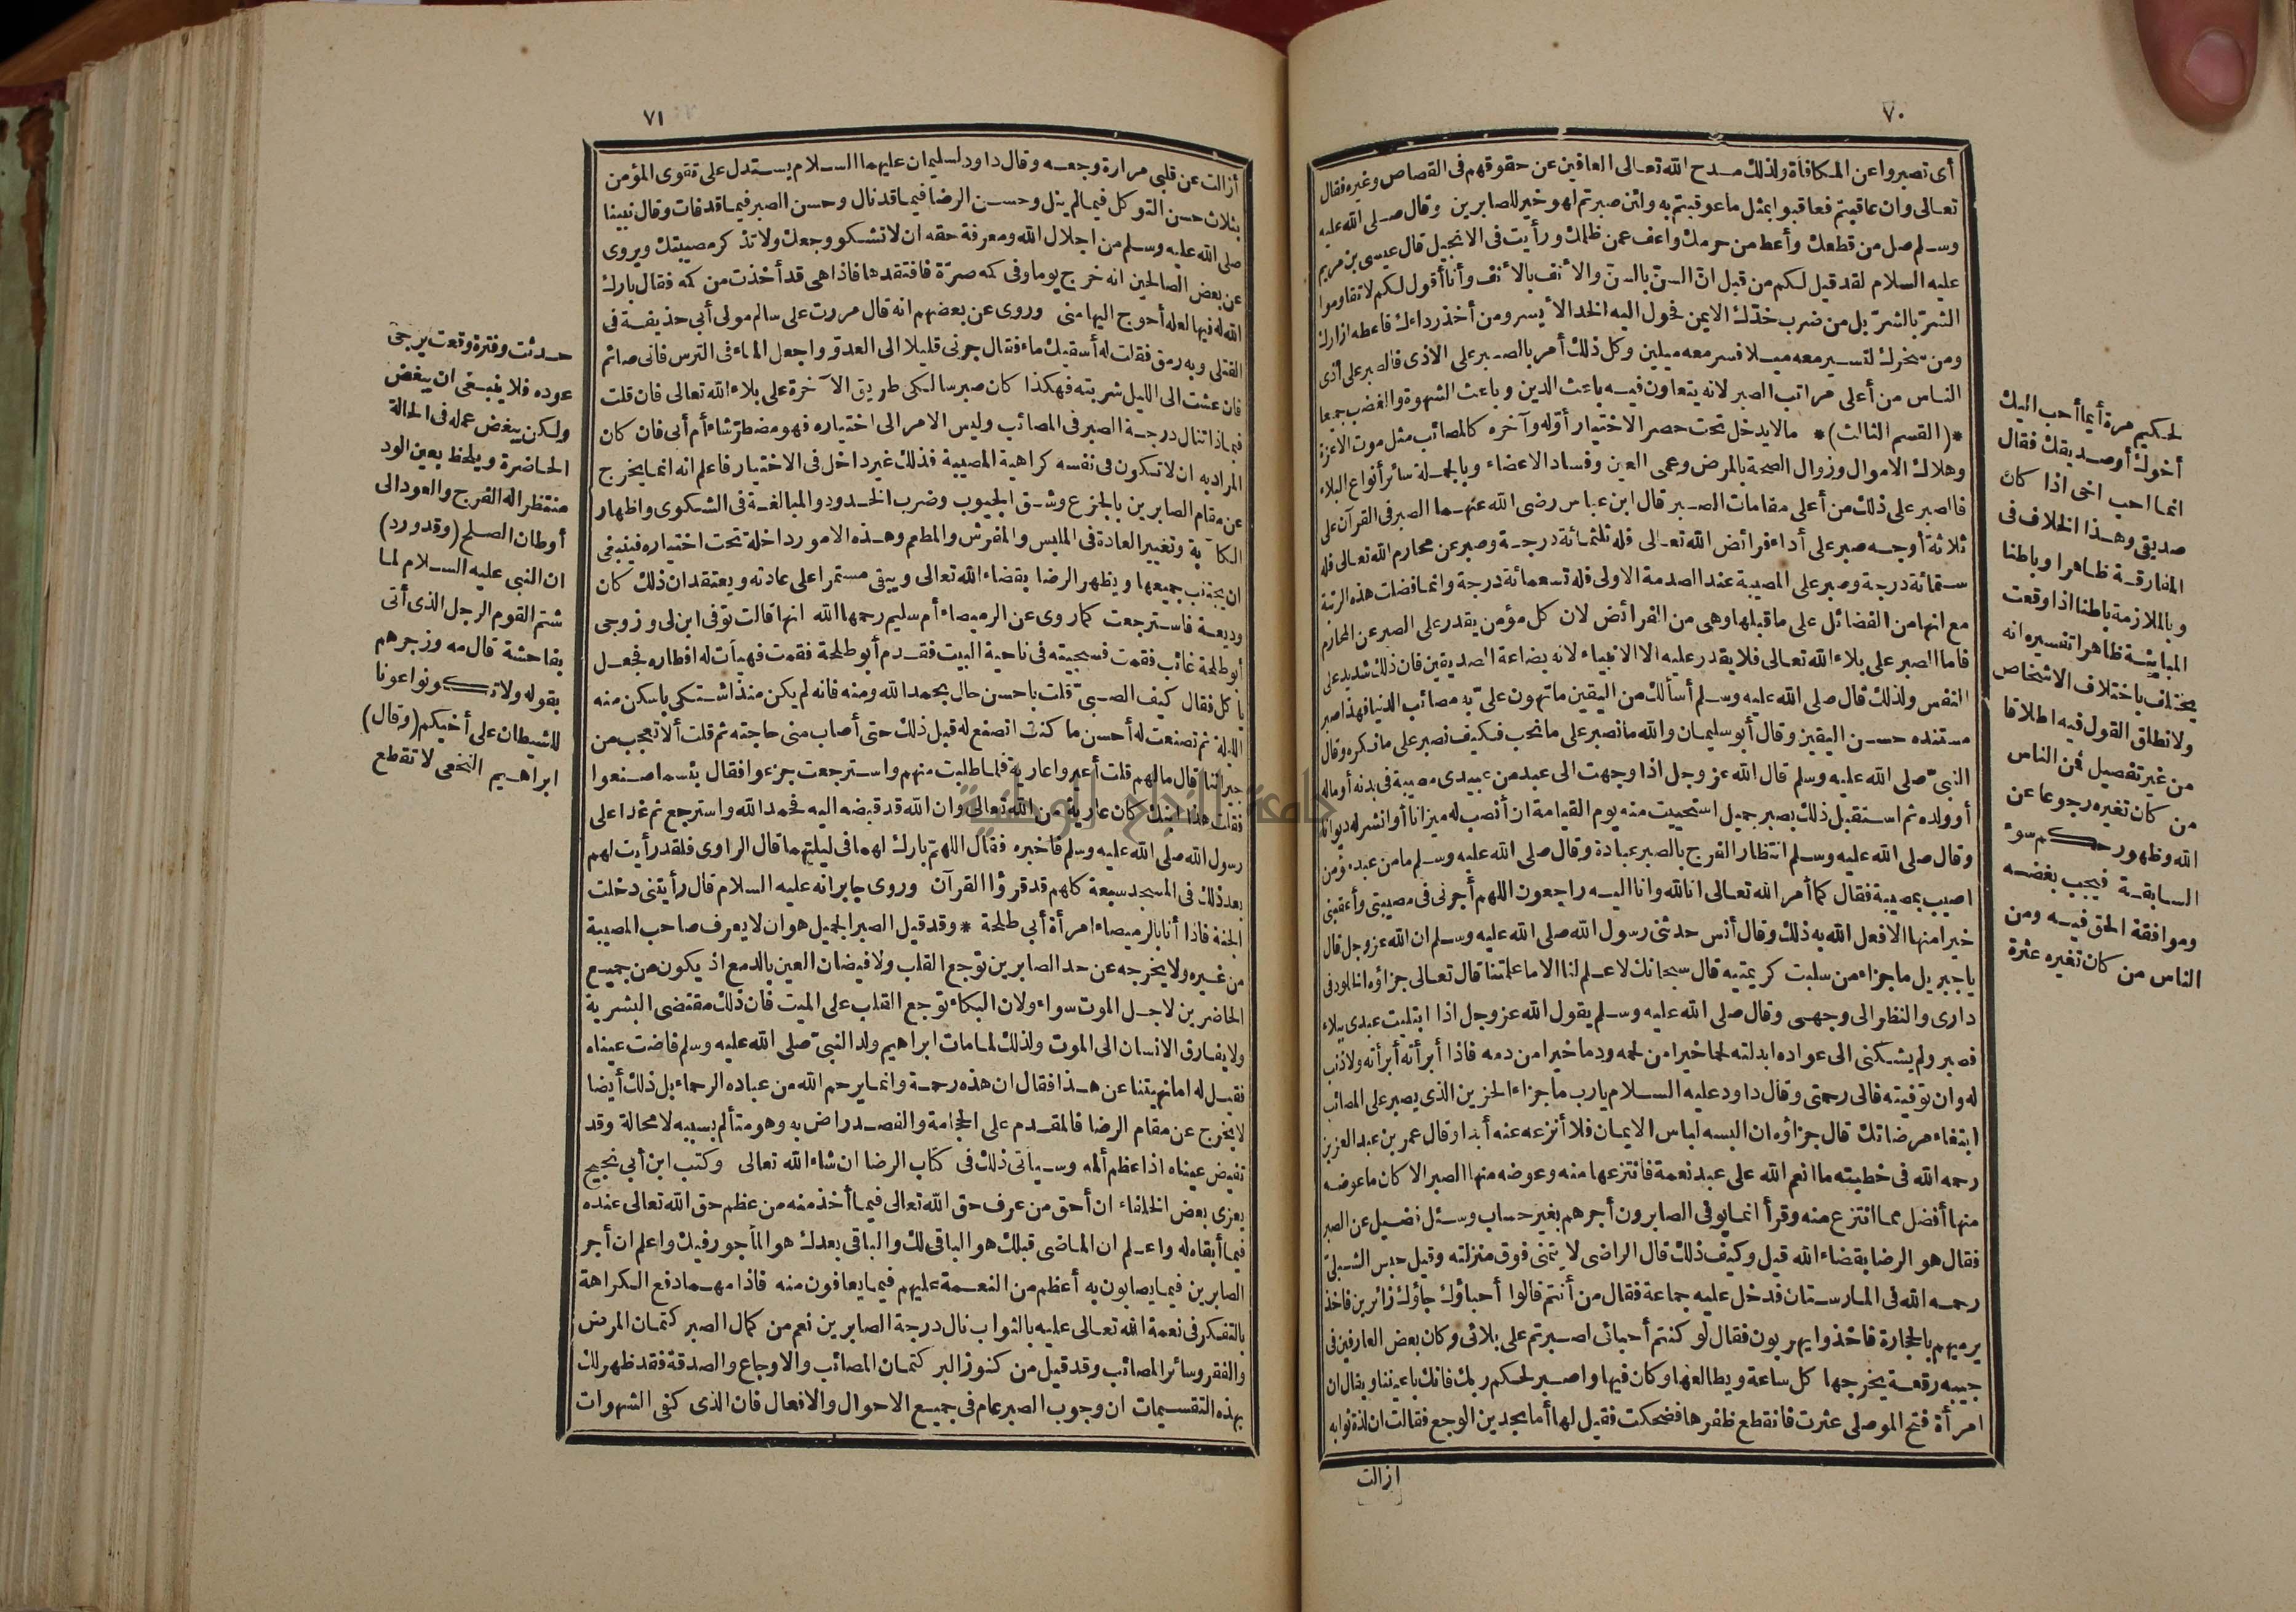 ٧٠
أى تصبروا عن المكافأة ولذلك مدح الله تعالى العافين عن حقوقهم فى القصاص وغيره فقال
تعالى وان عاقبتم فعاقبوا بمثل ما عوقبتم به ولئن صبرتم لهو خير للصابرين وقال صلى الله عليه
وسلم صل من قطعك وأعط من حرمك واعف عمن ظلمك ورأيت فى الانجيل قال عيسى بن مريم
عليه السلام لقد قيل لكم من قبل ان السن بالسن والأنف بالأنف وأنا أقول لكم لا تقاوموا
الشر بالشر بل من ضرب خدك الايمن فحول اليه الخد الأيسر ومن أخذ رداءك فاعطه ازارك
ومن سخرك لتسير معه ميلا فسر معه ميلين وكل ذلك أمر بالصبر على الاذى فالصبر على أذى
الناس من أعلى مراتب الصبر لانه يتعاون فيه باعث الدين وباعث الشهوة والغضب جميعا
*(القسم الثالث)* مالا يدخل تحت حصر الاختيار أوله وآخره كالمصائب مثل موت الاعزة
وهلاك الاموال وزوال الصحة بالمرض وعمى العين وفساد الاعضاء وبالجملة سائر أنواع البلاء
فالصبر على ذلك من أعلى مقامات الصبر قال ابن عباس رضى الله عنهما الصبر فى القرآن على
ثلاثة أوجه صبر على أداء فرائض الله تعالى فله ثلثمائة درجة وصبر عن محارم الله تعالى فله
ستمائة درجة وصبر على المصيبة عند الصدمة الاولى فله تسعمائة درجة وانما فضلت هذه الرتبة
مع انها من الفضائل على ما قبلها وهى من الفرائض لان كل مؤمن يقدر على الصبر عن المحارم
فاما الصبر على بلاء الله تعالى فلا يقدر عليه الا الانبياء لانه بضاعة الصديقين فان ذلك شديد على
النفس ولذلك قال صلى الله عليه وسلم أسألك من اليقين ما تهون على به مصائب الدنيا فهذا صبر
مستنده حسن اليقين وقال أبو سليمان والله ما نصبر على ما نحب فكيف نصبر على ما نكره وقال
النبى صلى الله عليه وسلم قال الله عز وجل اذا وجهت الى عبد من عبيدى مصيبة فى بدنه أو ماله
أو ولده ثم استقبل ذلك بصبر جميل استحييت منه يوم القيامة ان أنصب له ميزانا أو انشر له ديوانا
وقال صلى الله عليه وسلم انتظار الفرج بالصبر عبادة وقال صلى الله عليه وسلم ما من عبد مؤمن
اصيب بمصيبة فقال كما أمر الله تعالى انا لله وانا اليه راجعون اللهم أجرنى فى مصيبتى وأعقبنى
خيرا منها الا فعل الله به ذلك وقال أنس حدثنى رسول الله صلى الله عليه وسلم ان الله عز وجل قال
يا جبريل ما جزاء من سلبت كريمتيه قال سبحانك لا علم لنا الا ما علمتنا قال تعالى جزاؤه الخلود فى
دارى والنظر الى وجهى وقال صلى الله عليه وسلم يقول الله عز وجل اذا ابتليت عبدى ببلاء
فصبر ولم يشكنى الى عواده ابدلته لحما خيرا من لحمه ودما خيرا من دمه فاذا أبرأته أبرأته ولا ذنب
له وان توفيته فالى رحمتى وقال داود عليه السلام يا رب ما جزاء الحزين الذى يصبر على المصائب
ابتغاء مرضاتك قال جزاؤه ان البسه لباس الايمان فلا أنزعه عنه أبدا وقال عمر بن عبد العزيز
رحمه الله فى خطبته ما انعم الله على عبد نعمة فانتزعها منه وعوضه منها الصبر الا كان ما عوضه
منها أفضل مما انتزع منه وقرأ انما يوفى الصابرون أجرهم بغير حساب وسئل فضيل عن الصبر
فقال هو الرضا بقضاء الله قيل وكيف ذلك قال الراضى لا يتمنى فوق منزلته وقيل حبس الشبلى
رحمه الله فى المارستان فدخل عليه جماعة فقال من أنتم قالوا أحباؤك جاؤك زائرين فاخذ
يرميهم بالحجارة فاخذوا يهربون فقال لو كنتم أحبائى لصبرتم على بلائى وكان بعض العارفين فى
جيبه رقعة يخرجها كل ساعة ويطالعها وكان فيها واصبر لحكم ربك فانك باعيننا ويقال ان
امرأة فتح الموصلى عثرت فانقطع ظفرها فضحكت فقيل لها أما تجدين الوجع فقالت ان لذة ثوابه
ازالت
لحكيم مرة أيما أحب اليك
أخوك أو صديقك فقال
انما احب اخى اذا كان
صديقى وهذا الخلاف فى
المفارقة ظاهرا وباطنا
وبالملازمة باطنا اذا وقعت
المباينة ظاهرا تفسيره انه
يختلف باختلاف الاشخاص
ولا نطلق القول فيه اطلاقا
من غير تفصيل فمن الناس
من كان تغيره رجوعا عن
الله وظهور حكم سوء
السابقة فيجب بغضه
وموافقة الحق فيه ومن
الناس من كان تغيره عثرة
٧١
أزالت عن قلبى مرارة وجعه وقال داود لسليمان عليهما السلام يستدل على تقوى المؤمن
بثلاث حسن التوكل فيما لم ينل وحسن الرضا فيما قد نال وحسن الصبر فيما قد فات وقال نبينا
صلى الله عليه وسلم من اجلال الله ومعرفة حقه ان لا تشكو وجعك ولا تذكر مصيبتك ويروى
عن بعض الصالحين انه خرج يوما وفى كمه صرة فافتقدها فاذا هى قد أخذت من كمه فقال بارك
الله له فيها لعله أحوج اليها منى وروى عن بعضهم انه قال مررت على سالم مولى أبى حذيفة فى
القتلى وبه رمق فقلت له أسقيك ماء فقال جرنى قليلا الى العدو واجعل الماء فى الترس فانى صائم
فان عشت الى الليل شربته فهكذا كان صبر سالكى طريق الآخرة على بلاء الله تعالى فان قلت
فبماذا تنال درجة الصبر فى المصائب وليس الامر الى اختياره فهو مضطر شاء أم أبى فان كان
المراد به ان لا تكون فى نفسه كراهية المصيبة فذلك غير داخل فى الاختيار فاعلم انه انما يخرج
عن مقام الصابرين بالجزع وشق الجيوب وضرب الخدود والمبالغة فى الشكوى واظهار
الكآبة وتغيير العادة فى الملبس والمفرش والمطعم وهذه الامور داخلة تحت اختياره فينبغى
ان يجتنب جميعها ويظهر الرضا بقضاء الله تعالى ويبقى مستمرا على عادته ويعتقد ان ذلك كان
وديعة فاسترجعت كما روى عن الرميصاء أم سليم رحمها الله انها قالت توفى ابن لى وزوجى
أبو طلحة غائب فقمت فسجيته فى ناحية البيت فقدم أبو طلحة فقمت فهيأت له افطاره فجعل
يأكل فقال كيف الصبى قلت باحسن حال بحمد الله ومنه فانه لم يكن منذ اشتكى باسكن منه
الليلة ثم تصنعت له أحسن ما كنت اتصنع له قبل ذلك حتى أصاب منى حاجته ثم قلت ألا تعجب من
جيراننا قال ما لهم قلت أعيروا عارية فلما طلبت منهم واسترجعت جزعوا فقال بئسما صنعوا
فقلت هذا ابنك كان عارية من الله تعالى وان الله قد قبضه اليه فحمد الله واسترجع ثم غدا على
رسول الله صلى الله عليه وسلم فاخبره فقال اللهم بارك لهما فى ليلتهما قال الراوى فلقد رأيت لهم
بعد ذلك فى المسجد سبعة كلهم قد قرؤا القرآن وروى جابر انه عليه السلام قال رأيتنى دخلت
الجنة فاذا أنا بالرميصاء امرأة أبى طلحة * وقد قيل الصبر الجميل هو ان لا يعرف صاحب المصيبة
من غيره ولا يخرجه عن حد الصابرين توجع القلب ولا فيضان العين بالدمع اذ يكون من جميع
الحاضرين لاجل الموت سواء ولان البكاء توجع القلب على الميت فان ذلك مقتضى البشرية
ولا يفارق الانسان الى الموت ولذلك لما مات ابراهيم ولد النبى صلى الله عليه وسلم فاضت عيناه
فقيل له اما نهيتنا عن هذا فقال ان هذه رحمة وانما يرحم الله من عباده الرحماء بل ذلك أيضا
لا يخرج عن مقام الرضا فالمقدم على الحجامة والفصد راض به وهو متألم بسببه لا محالة وقد
تفيض عيناه اذا عظم ألمه وسيأتى ذلك فى كتاب الرضا ان شاء الله تعالى وكتب ابن أبى نجيح
يعزى بعض الخلفاء ان أحق من عرف حق الله تعالى فيما أخذ منه من عظم حق الله تعالى عنده
فيما أبقاه له واعلم ان الماضى قبلك هو الباقى لك والباقى بعدك هو المأجور فيك واعلم ان أجر
الصابرين فيما يصابون به أعظم من النعمة عليهم فيما يعافون منه فاذا مهما دفع الكراهة
بالتفكر فى نعمة الله تعالى عليه بالثواب نال درجة الصابرين نعم من كمال الصبر كتمان المرض
والفقر وسائر المصائب وقد قيل من كنوز البر كتمان المصائب والاوجاع والصدقة فقد ظهر لك
بهذه التقسيمات ان وجوب الصبر عام فى جميع الاحوال والافعال فان الذى كفى الشهوات
حدثت وفترة وقعت يرجى
عوده فلا ينبغى ان يبغض
ولكن يبغض عمله فى الحالة
الحاضرة ويلحظ بعين الود
منتظرا له الفرج والعود الى
أوطان الصلح (وقد ورد)
ان النبى عليه السلام لما
شتم القوم الرجل الذى أتى
بفاحشة قال مه وزجرهم
بقوله ولا تكونوا عونا
للشيطان على أخيكم (وقال)
ابراهيم النخعى لا تقطع
جامعة النجاح الوطنية